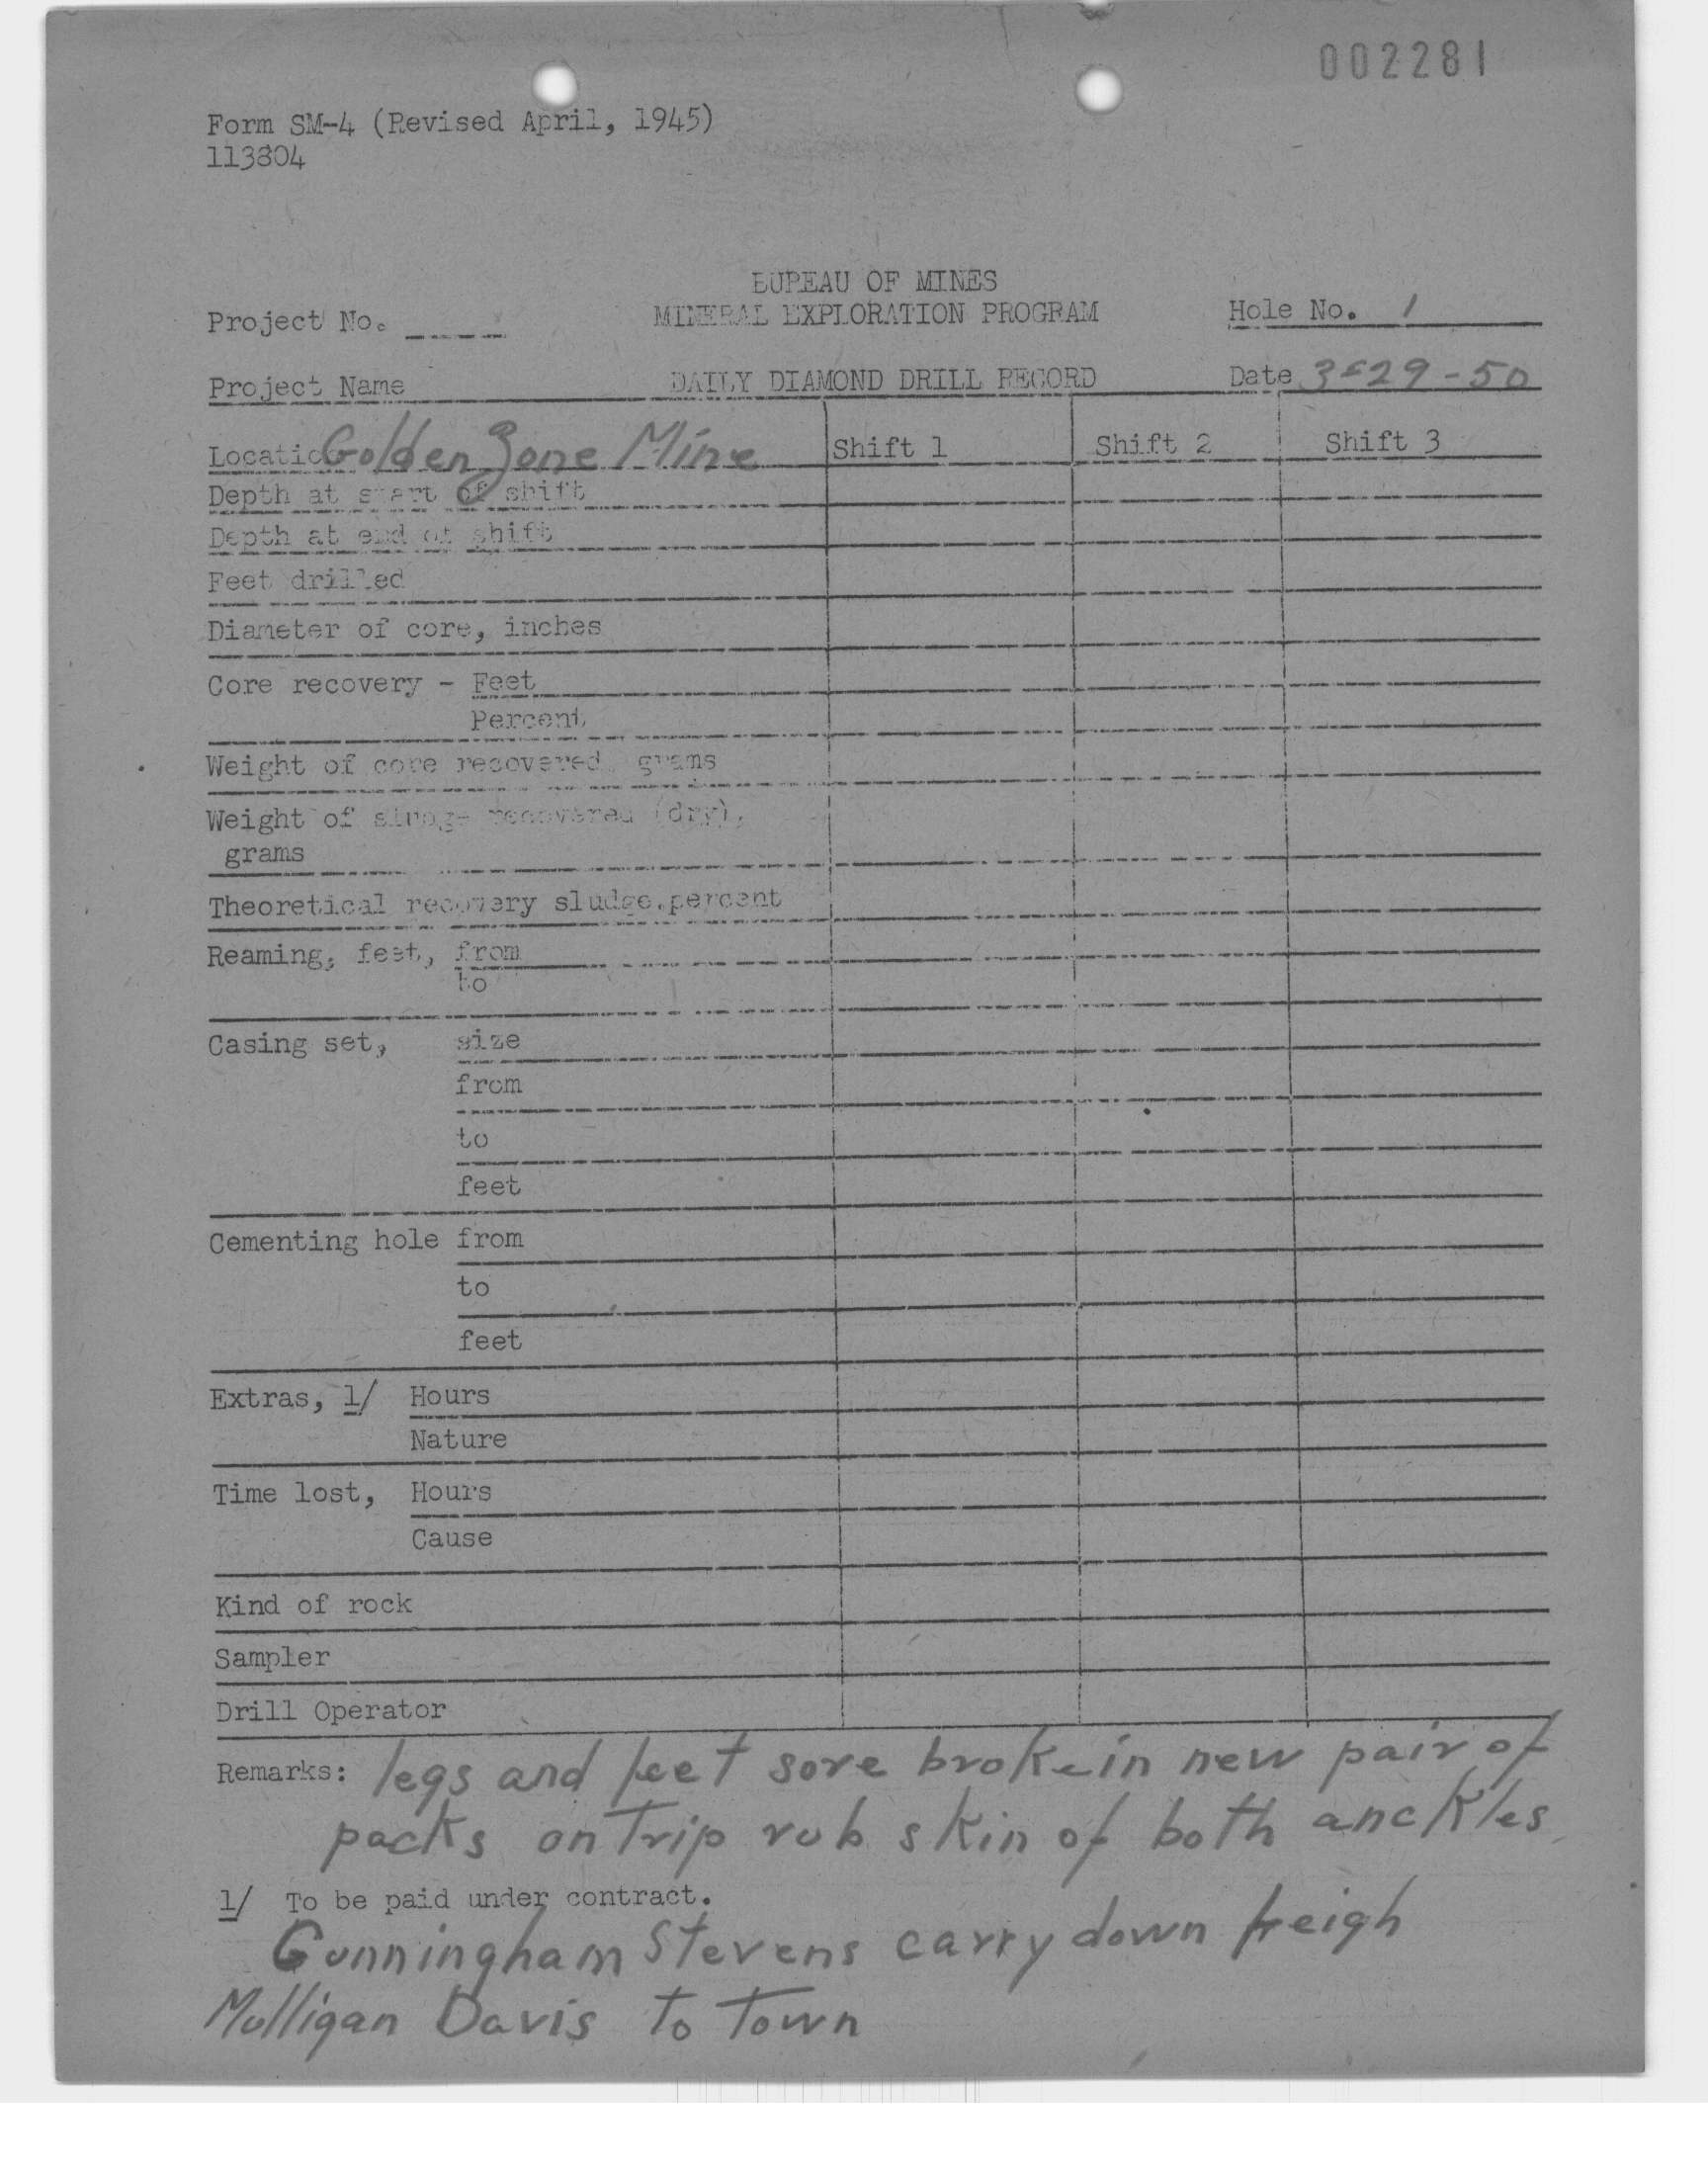 002281
Form SM-4 (Revised April, 1945)
113804
BUREAU OF MINES
Project No. MINERAL EXPLORATION PROGRAM Hole No. 1
Project Name DAILY DIAMOND DRILL RECORD Date 3-29-50
Location Golden Zone Mine Shift 1 Shift 2 Shift 3
Depth at start of shift
Depth at end of shift
Feet drilled
Diameter of core, inches
Core recovery - Feet
Percent
Weight of core recovered, grams
Weight of sludge recovered (dry),
grams
Theoretical recovery sludge, percent
Reaming, feet, from
to
Casing set, size
from
to
feet
Cementing hole from
to
feet
Extras, 1/ Hours
Nature
Time lost, Hours
Cause
Kind of rock
Sampler
Drill Operator
Remarks: legs and feet sore broke in new pair of
packs on Trip rub skin of both anckles
1/ To be paid under contract.
Cunningham Stevens carry down freigh
Mulligan Davis To Town